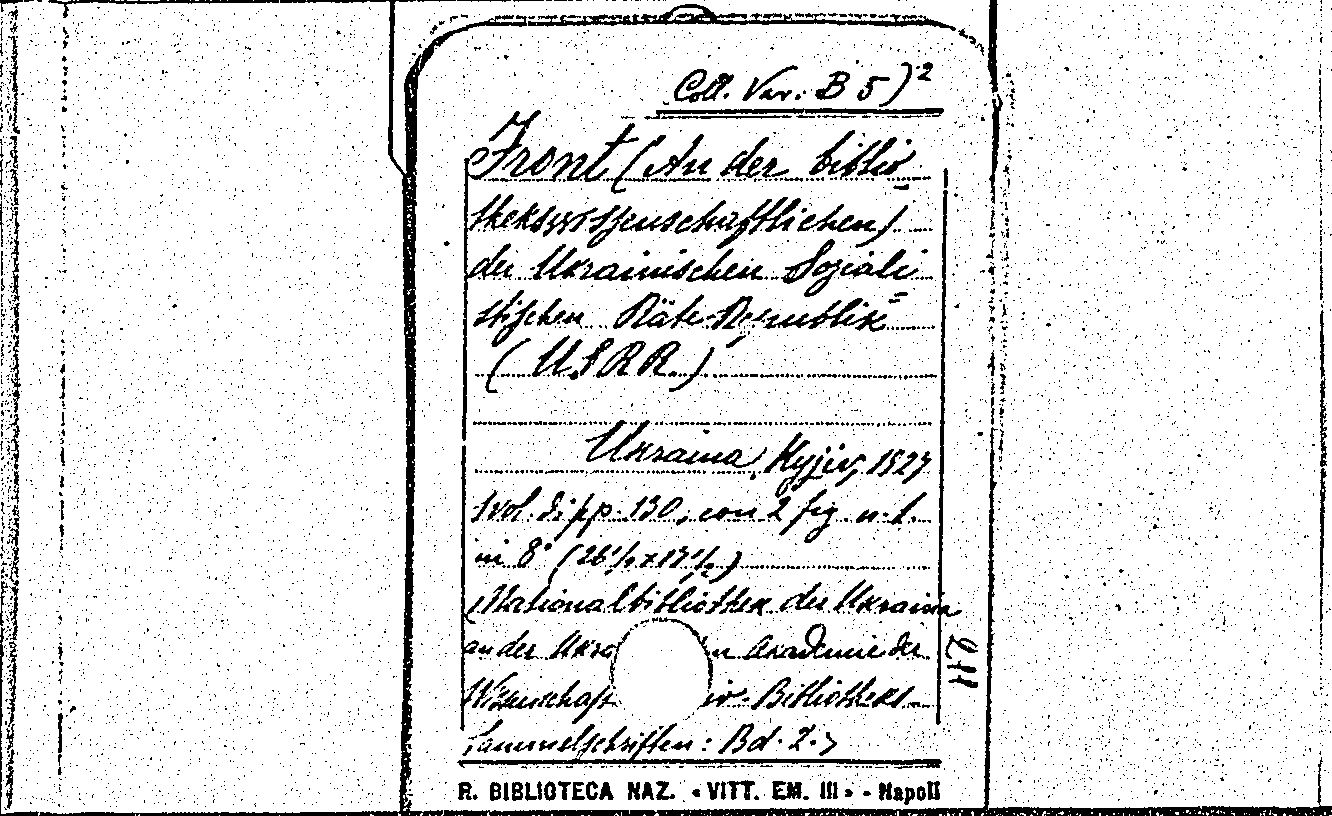 Coll. Var. B 5)²
Front (An der biblio=
thekswissenschaftlichen)
der Ukrainischen Soziali=
stischen Räte-Republik
(U.S.R.R.)
Ukraina, Kyjiv, 1927
1 vol. di pp. 130, con 2 fig. n. t.
in 8° (26½ x 17½)
(Nationalbibliothek der Ukraina
an der Akademie der
Bibliotheks-
Sammelschriften: Bd. 2.)
211
R. BIBLIOTECA NAZ. «VITT. EM. III» - Napoli